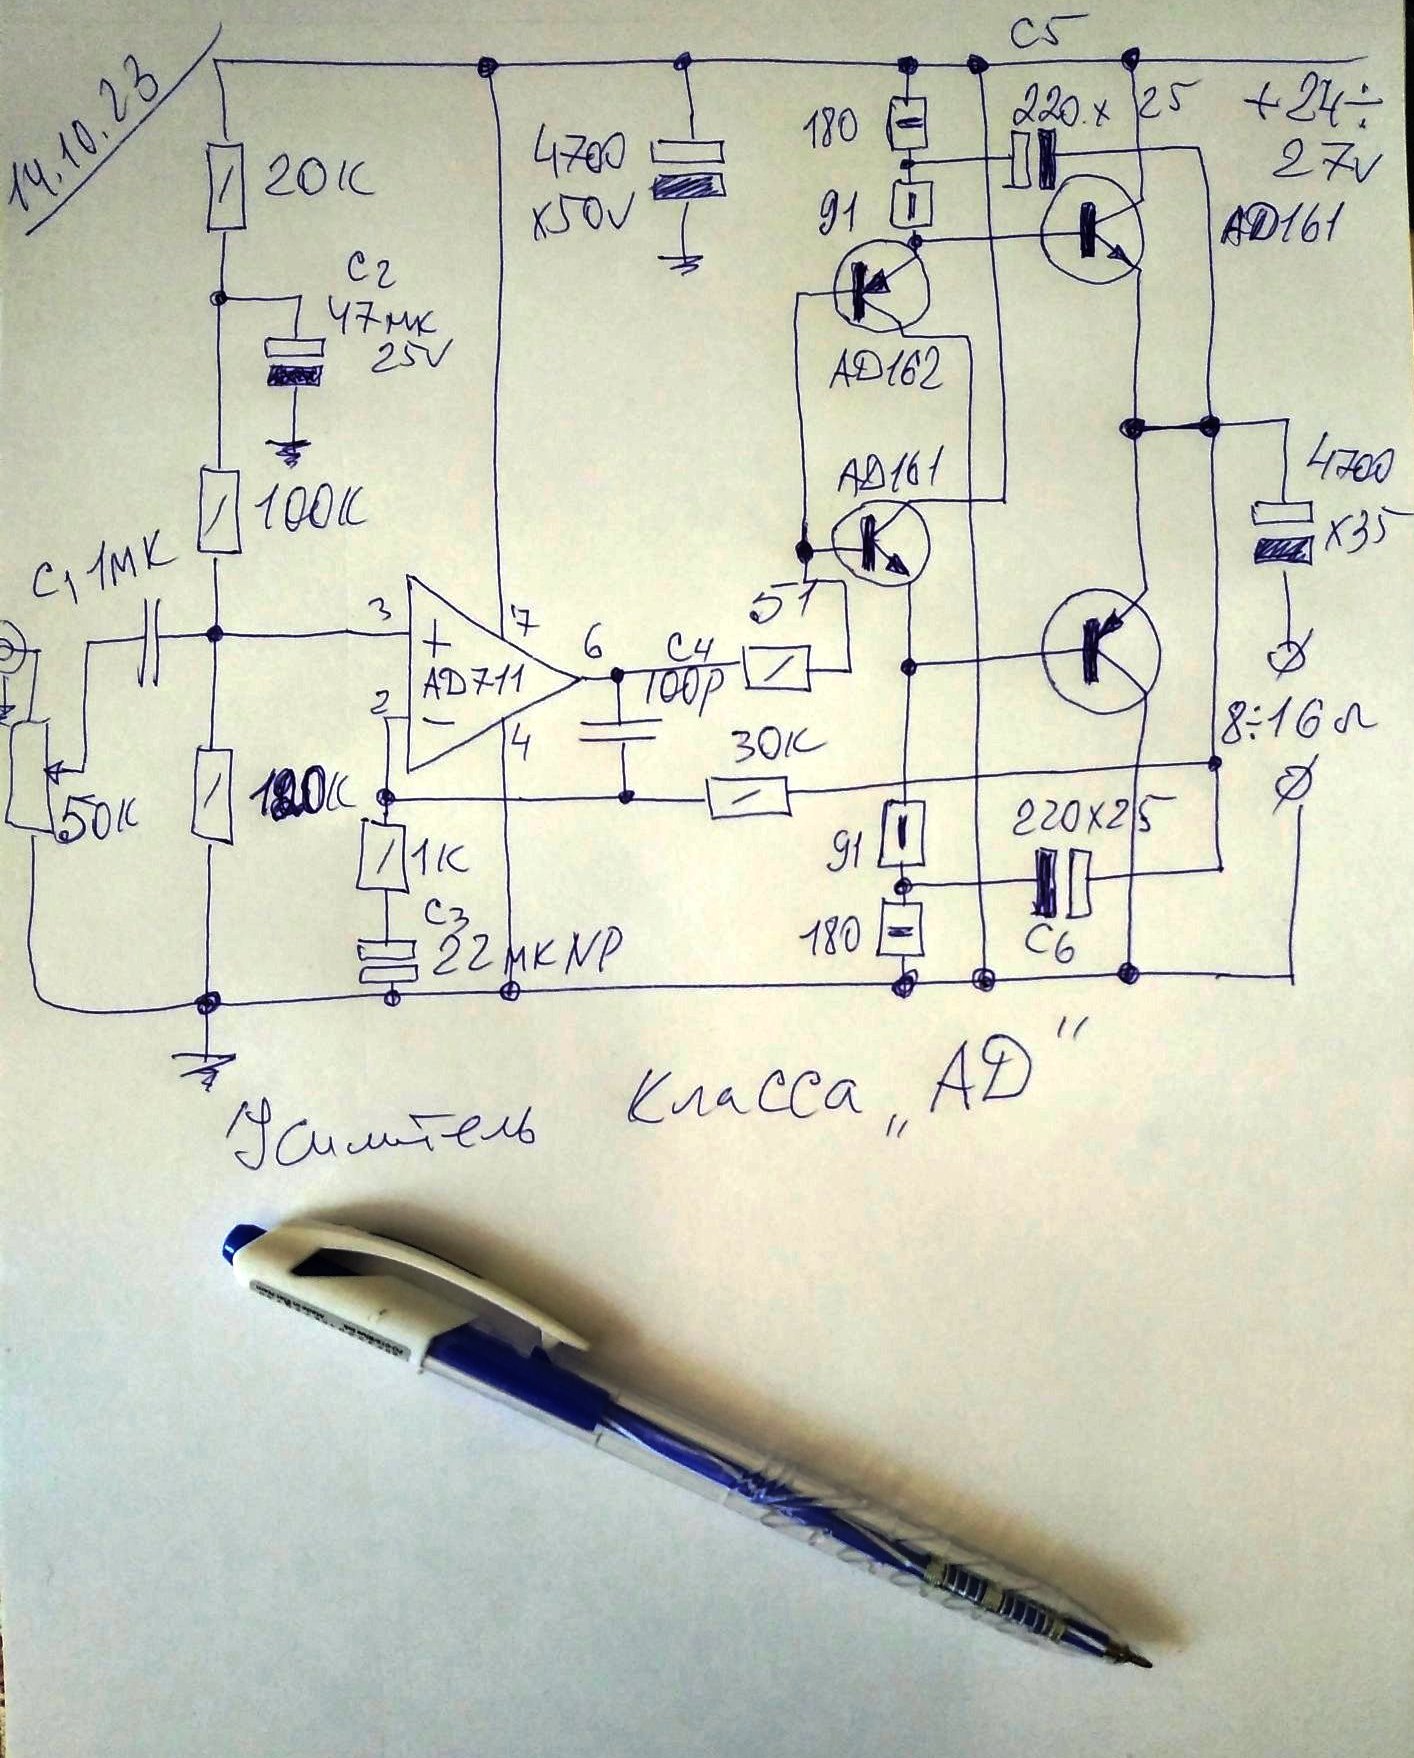 14.10.23
C5
220.x 25
+24÷
27V
180
20K
4700
x50V
91
AD161
C2
47мк
25V
AD162
AD161
4700
x35
100K
C1 1МК
51
3
7
+
AD711
6
C4
100P
2
-
4
8÷16 Ω
30K
50K
120K
220x25
1K
91
C3
22мк NP
180
C6
Усилитель класса „AD"